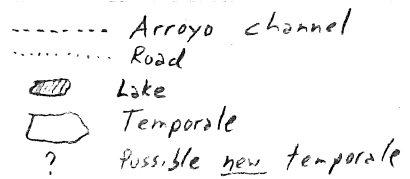 Arroyo channel
Road
Lake
Temporale
? Possible new temporale